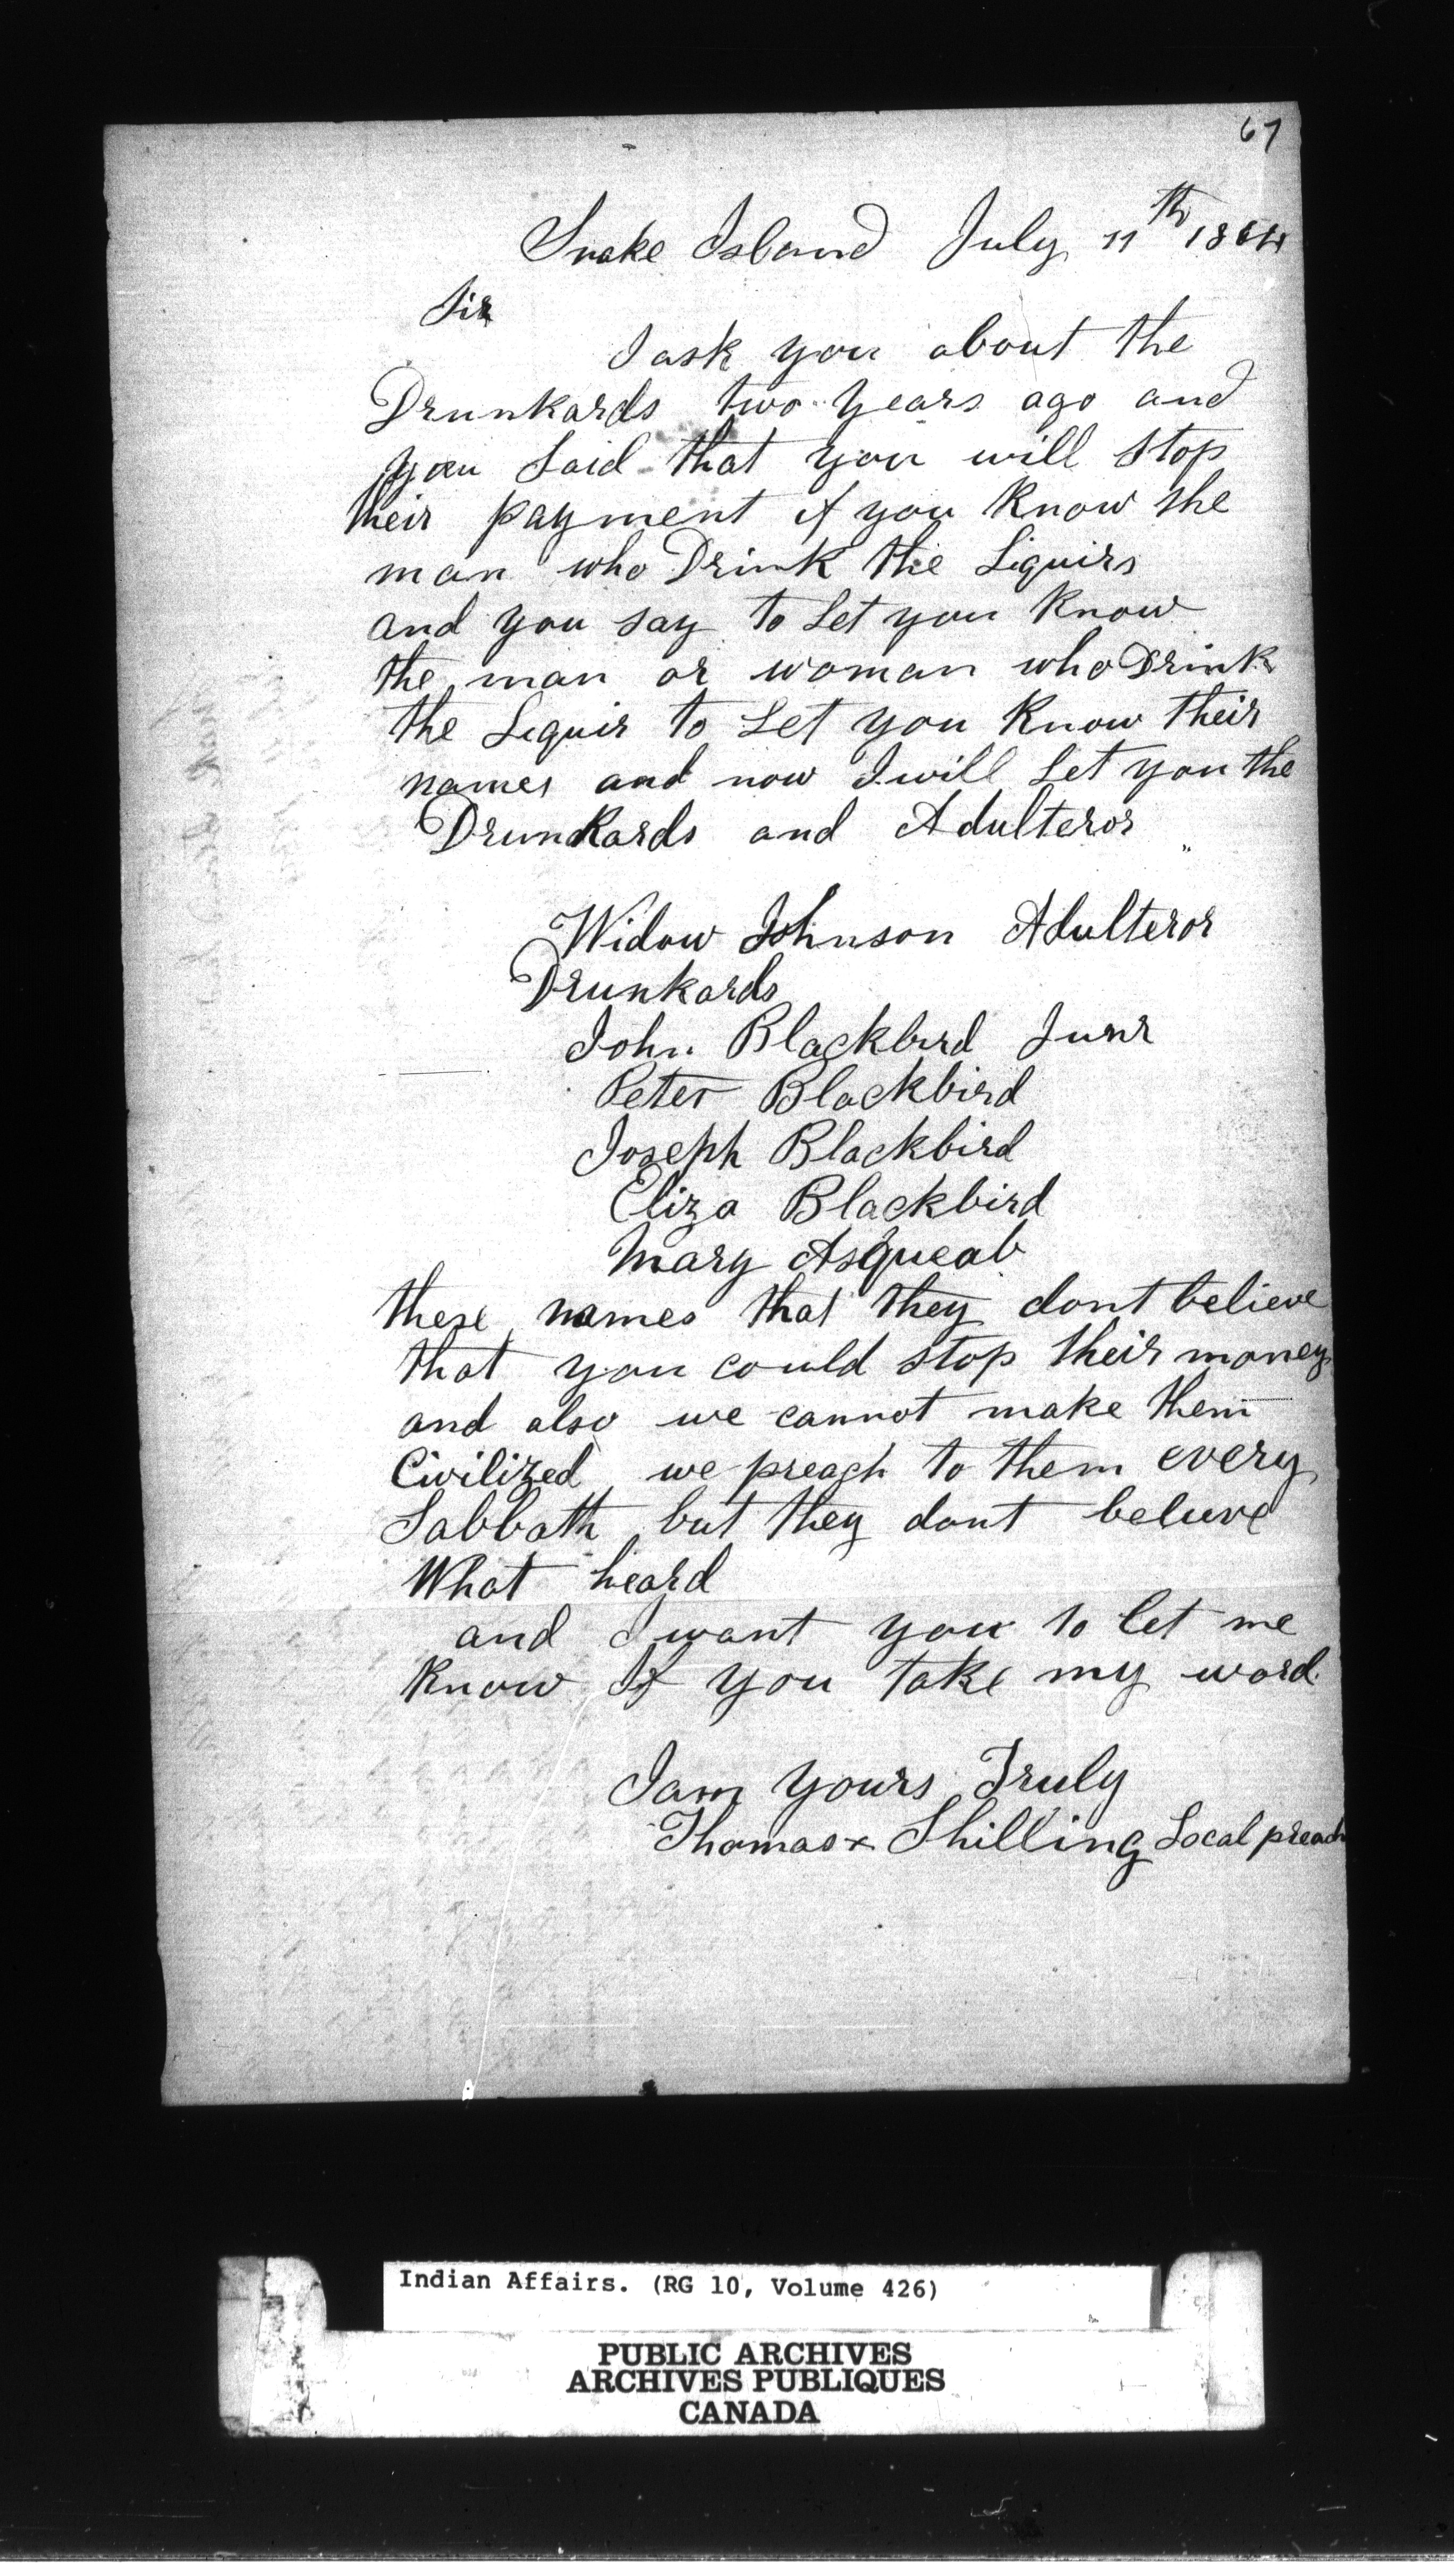 67
Snake Island July 11th 1864
Sir
I ask you about the
Drunkards two years ago and
you Said that you will stop
their payment if you Know the
man who Drink the Liquirs
and you say to Let you Know
the man or woman who Drink
the Liquir to Let you Know their
names and now I will Let you the
Drunkards and Adulteror
Widow Johnson Adulteror
Drunkards
John Blackbird Junr
Peter Blackbird
Joseph Blackbird
Eliza Blackbird
Mary Asqueab
these names that they dont believe
that you could stop their money
and also we cannot make them
Civilized we preach to them every
Sabbath but they dont believe
What heard
and I want you to let me
Know If you take my word.
I am yours Truly
Thomas x Shilling Local preach
Indian Affairs. (RG 10, Volume 426)
PUBLIC ARCHIVES
ARCHIVES PUBLIQUES
CANADA